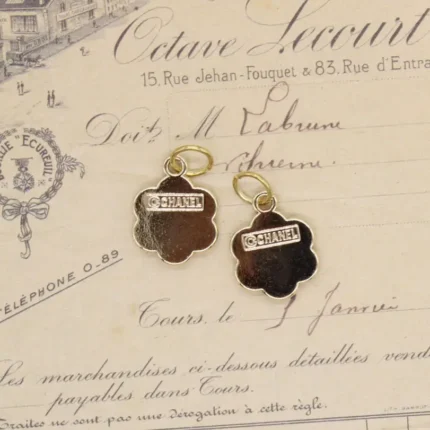 Octave Lecourt
15, Rue Jehan-Fouquet & 83, Rue d'Entra
Doit M Labrune
"ECUREUIL"
©CHANEL
©CHANEL
TÉLÉPHONE 0-89
Tours, le 5 Janvier
Les marchandises ci-dessous détaillées vend
payables dans Tours.
Traites ne sont pas une dérogation à cette règle.